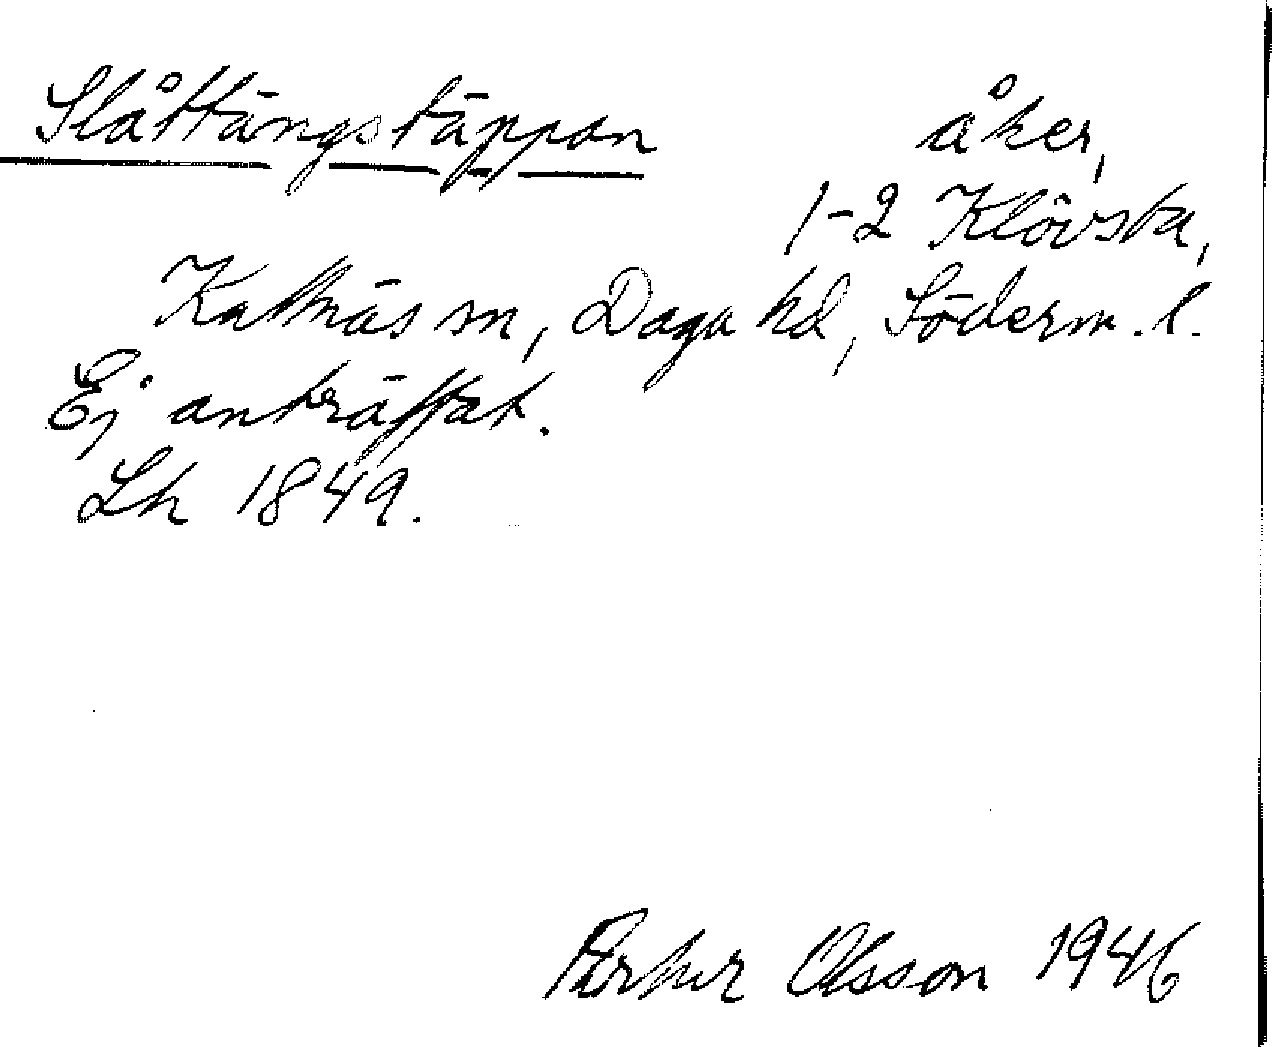 Slåttängstäppan åker,
1-2 Klövsta,
Kattnäs sn, Daga hd, Söderm. l.
Ej anträffat.
Lh 1849.
Olsson 1946